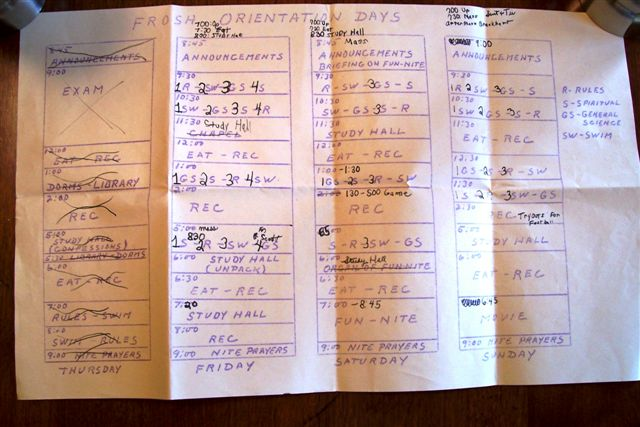 FROSH ORIENTATION DAYS
8:45
ANNOUNCEMENTS
9:00
EXAM
12:00
EAT - REC
1:00
DORMS - LIBRARY
2:00
REC
5:00
STUDY HALL
(CONFESSIONS)
5:30 LIBRARY - DORMS
6:00
EAT - REC
7:00
RULES - SWIM
8:00
SWIM - RULES
9:00 NITE PRAYERS
THURSDAY
700 Up
7:30 Eat
800: Study Hall
8:45
ANNOUNCEMENTS
9:30
1R - 2SW 3GS 4S
10:30
1SW - 2GS 3S 4R
11:30 Study Hall
CHAPEL
12:00
EAT - REC
1:00
1GS 2S - 3R - 4SW
2:00
REC
5:00 mass
830
1S 2R - 3SW 4GS
6:00 STUDY HALL
(UNPACK)
6:30
EAT - REC
7:20
STUDY HALL
8:00
REC
9:00 NITE PRAYERS
FRIDAY
700 Up
730 Eat
830 STUDY Hall
8:45 Mass
ANNOUNCEMENTS
BRIEFING ON FUN-NITE
9:30
R - SW - 3GS - S
10:30
SW - GS - 3S - R
11:30
STUDY HALL
12:00
EAT - REC
1:00 - 1:30
1GS - 2S - 3R - SW
2:00 130 - 500 Game
REC
S - R - 3SW - GS
6:00 Study Hall
ORGAN OF FUN-NITE
6:30
EAT - REC
7:00 - 8.45
FUN - NITE
9:00 NITE PRAYERS
SATURDAY
700 Up
730 Mass
After Mass Breakfast
9:00
ANNOUNCEMENTS
9:30
1R 2SW 3GS - S
10:30
1SW 2GS 3S - R
11:30
EAT - REC
12:30
1GS - 2S - 3R - SW
1:30
1S 2R - 3SW - GS
2:30
REC Tryouts For
Football
5:00
STUDY HALL
6:00
EAT - REC
6:45
MOVIE
9:00 NITE PRAYERS
SUNDAY
R - RULES
S - SPIRITUAL
GS - GENERAL
SCIENCE
SW - SWIM